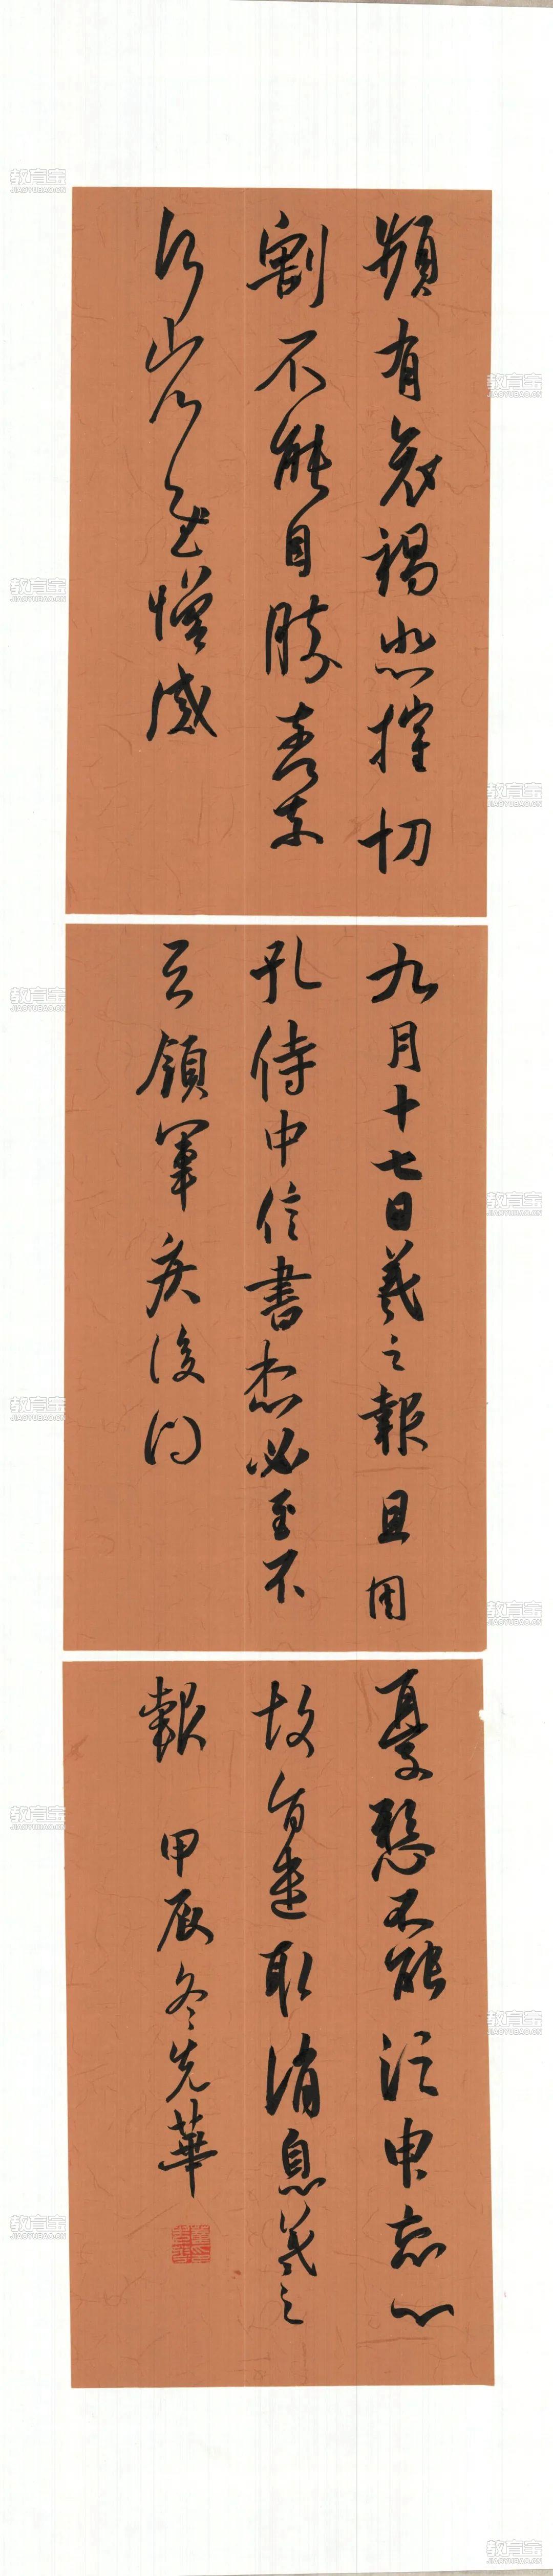 頻有哀禍悲摧切
割不能自勝奈何
奈何省慰增感
九月十七日羲之報且因
孔侍中信書想必至不
知領軍疾後問
憂懸不能須臾忘心
故旨遣取消息羲之
報 甲辰冬先華
教育宝
JIAOYUBAO.CN